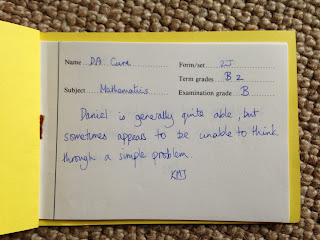 Name D.A. Cure Form/set 2J
Term grades B 2
Subject Mathematics Examination grade B
Daniel is generally quite able, but
sometimes appears to be unable to think
through a simple problem.
KMJ